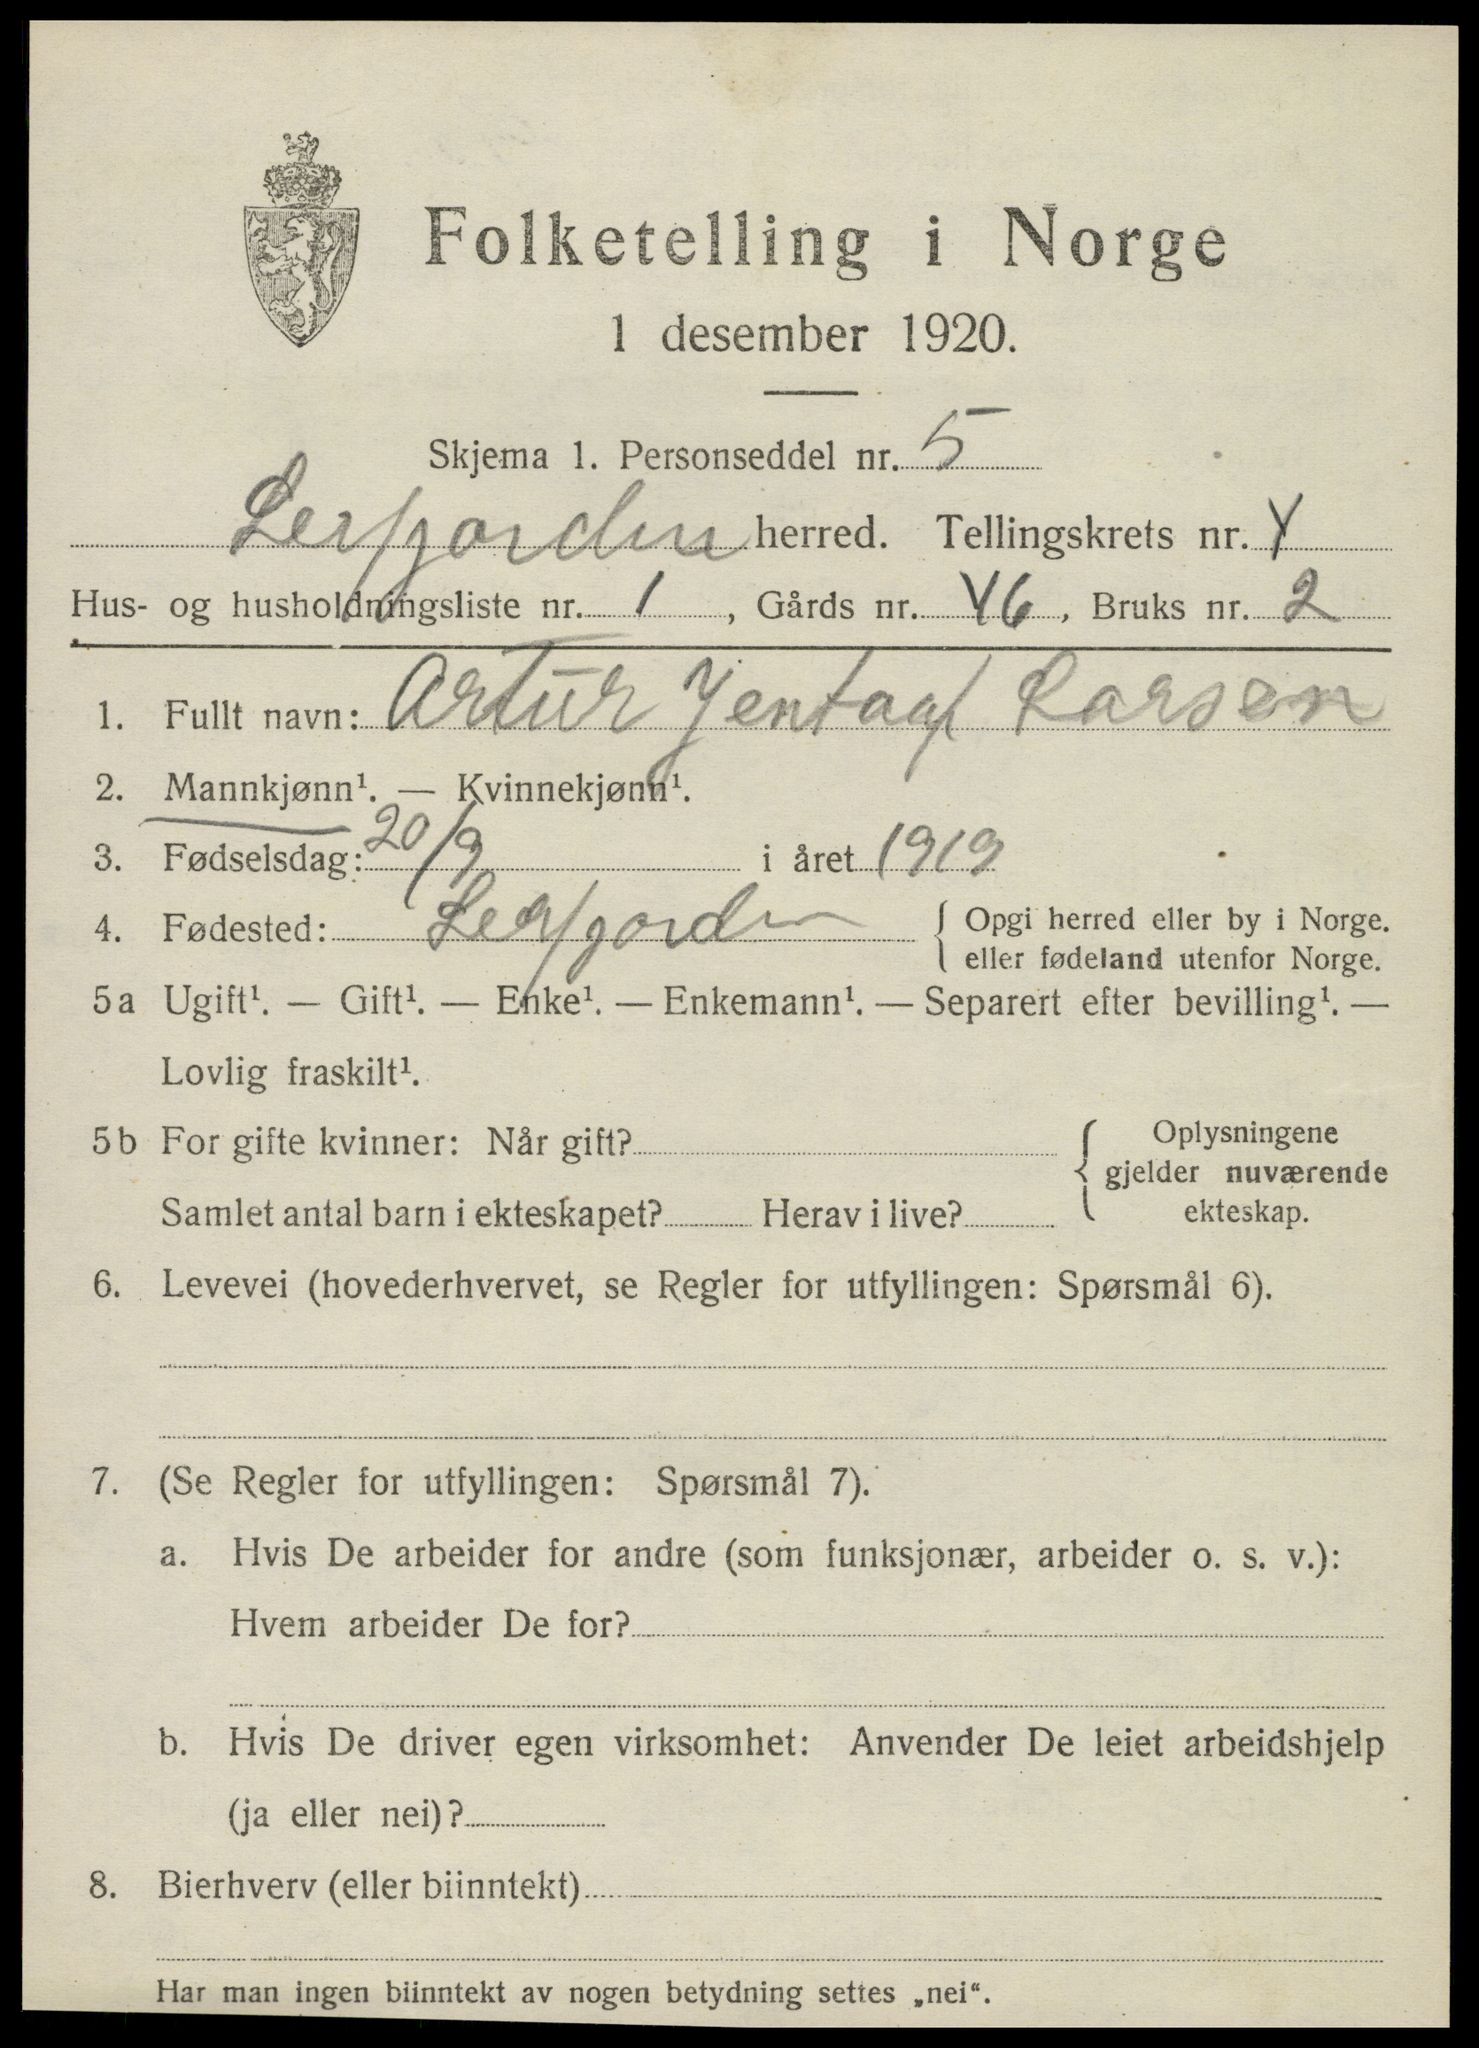 Folketelling i Norge
1 desember 1920.
Skjema 1. Personseddel nr. 5
Leirfjorden herred. Tellingskrets nr. 4
Hus- og husholdningsliste nr. 1, Gårds nr. 46, Bruks nr. 2
1. Fullt navn: Artur Larsen
2. Mannkjønn¹. — Kvinnekjønn¹.
3. Fødselsdag: 20/9 i året 1919
4. Fødested: Leirfjorden { Opgi herred eller by i Norge.
eller fødeland utenfor Norge.
5a Ugift¹. — Gift¹. — Enke¹. — Enkemann¹. — Separert efter bevilling¹. —
Lovlig fraskilt¹.
5b For gifte kvinner: Når gift? { Oplysningene
gjelder nuværende
Samlet antal barn i ekteskapet? Herav i live? ekteskap.
6. Levevei (hovederhvervet, se Regler for utfyllingen: Spørsmål 6).
7. (Se Regler for utfyllingen: Spørsmål 7).
a. Hvis De arbeider for andre (som funksjonær, arbeider o. s. v.):
Hvem arbeider De for?
b. Hvis De driver egen virksomhet: Anvender De leiet arbeidshjelp
(ja eller nei)?
8. Bierhverv (eller biinntekt)
Har man ingen biinntekt av nogen betydning settes „nei“.